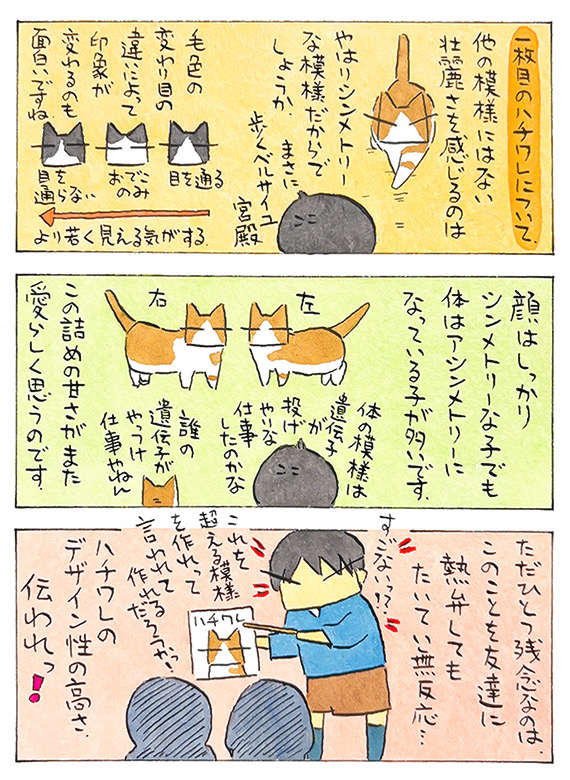 一枚目のハチワレについて.
他の模様にはない
壮麗さを感じるのは
やはりシンメトリー
な模様だからで
しょうか.
まさに
歩くベルサイユ
宮殿
毛色の
変わり目の
違いによって
印象が
変わるのも
面白いですね.
目を通る
おでこ
のみ
目を
通らない
より若く見える気がする.
顔はしっかり
シンメトリーな子でも
体はアシンメトリーに
なっている子が多いです.
左
右
体の模様は
遺伝子が
投げ
やりな
仕事
したのかな
誰の
遺伝子が
やっつけ
仕事やねん
この詰めの甘さがまた
愛らしく思うのです.
ただひとつ残念なのは.
このことを友達に
熱弁しても
たいてい無反応…
すごないっ?!?
これを
超える模様
を作れって
言われて
作れるだろうか?!
ハチワレ
ハチワレの
デザイン性の高さ.
伝われっ!